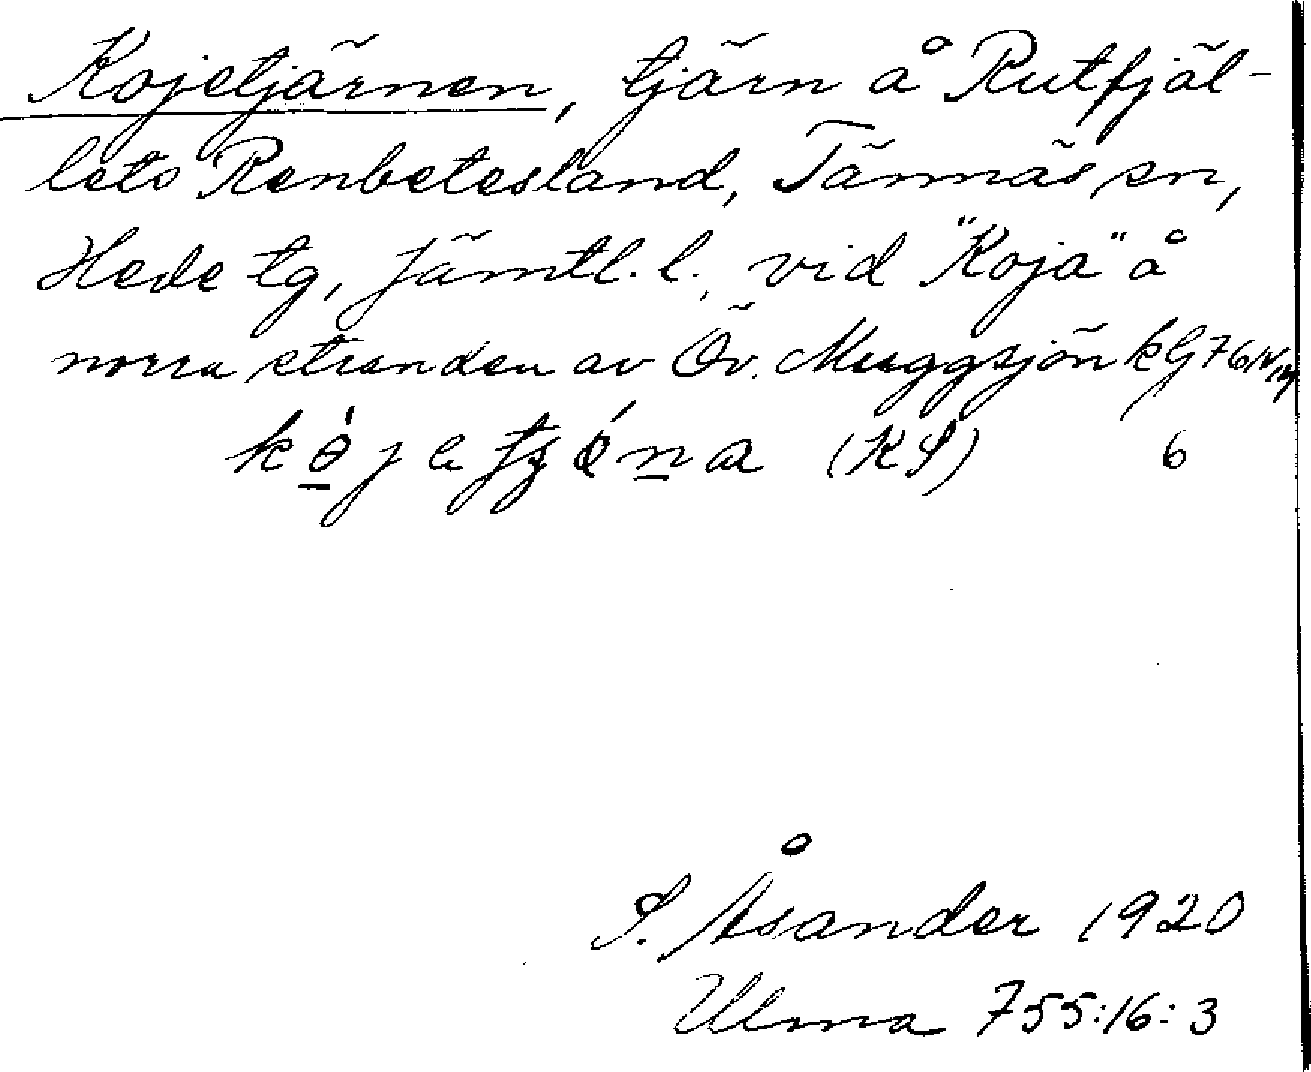 Kojetjärnen, tjärn å Rutfjäl-
lets Renbetesland, Tännäs sn,
Hede tg, Jämtl. l., vid "Koja" å
norra stranden av Öv. Muggsjön kG 76
(KL) 6
S. Åsander 1920
Ulma 755:16:3